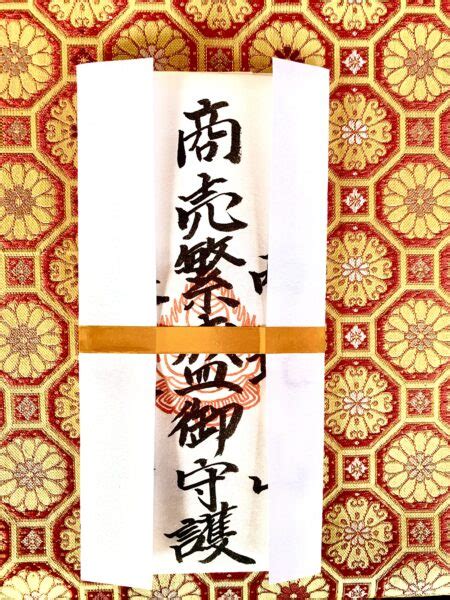 商売繁盛御守護